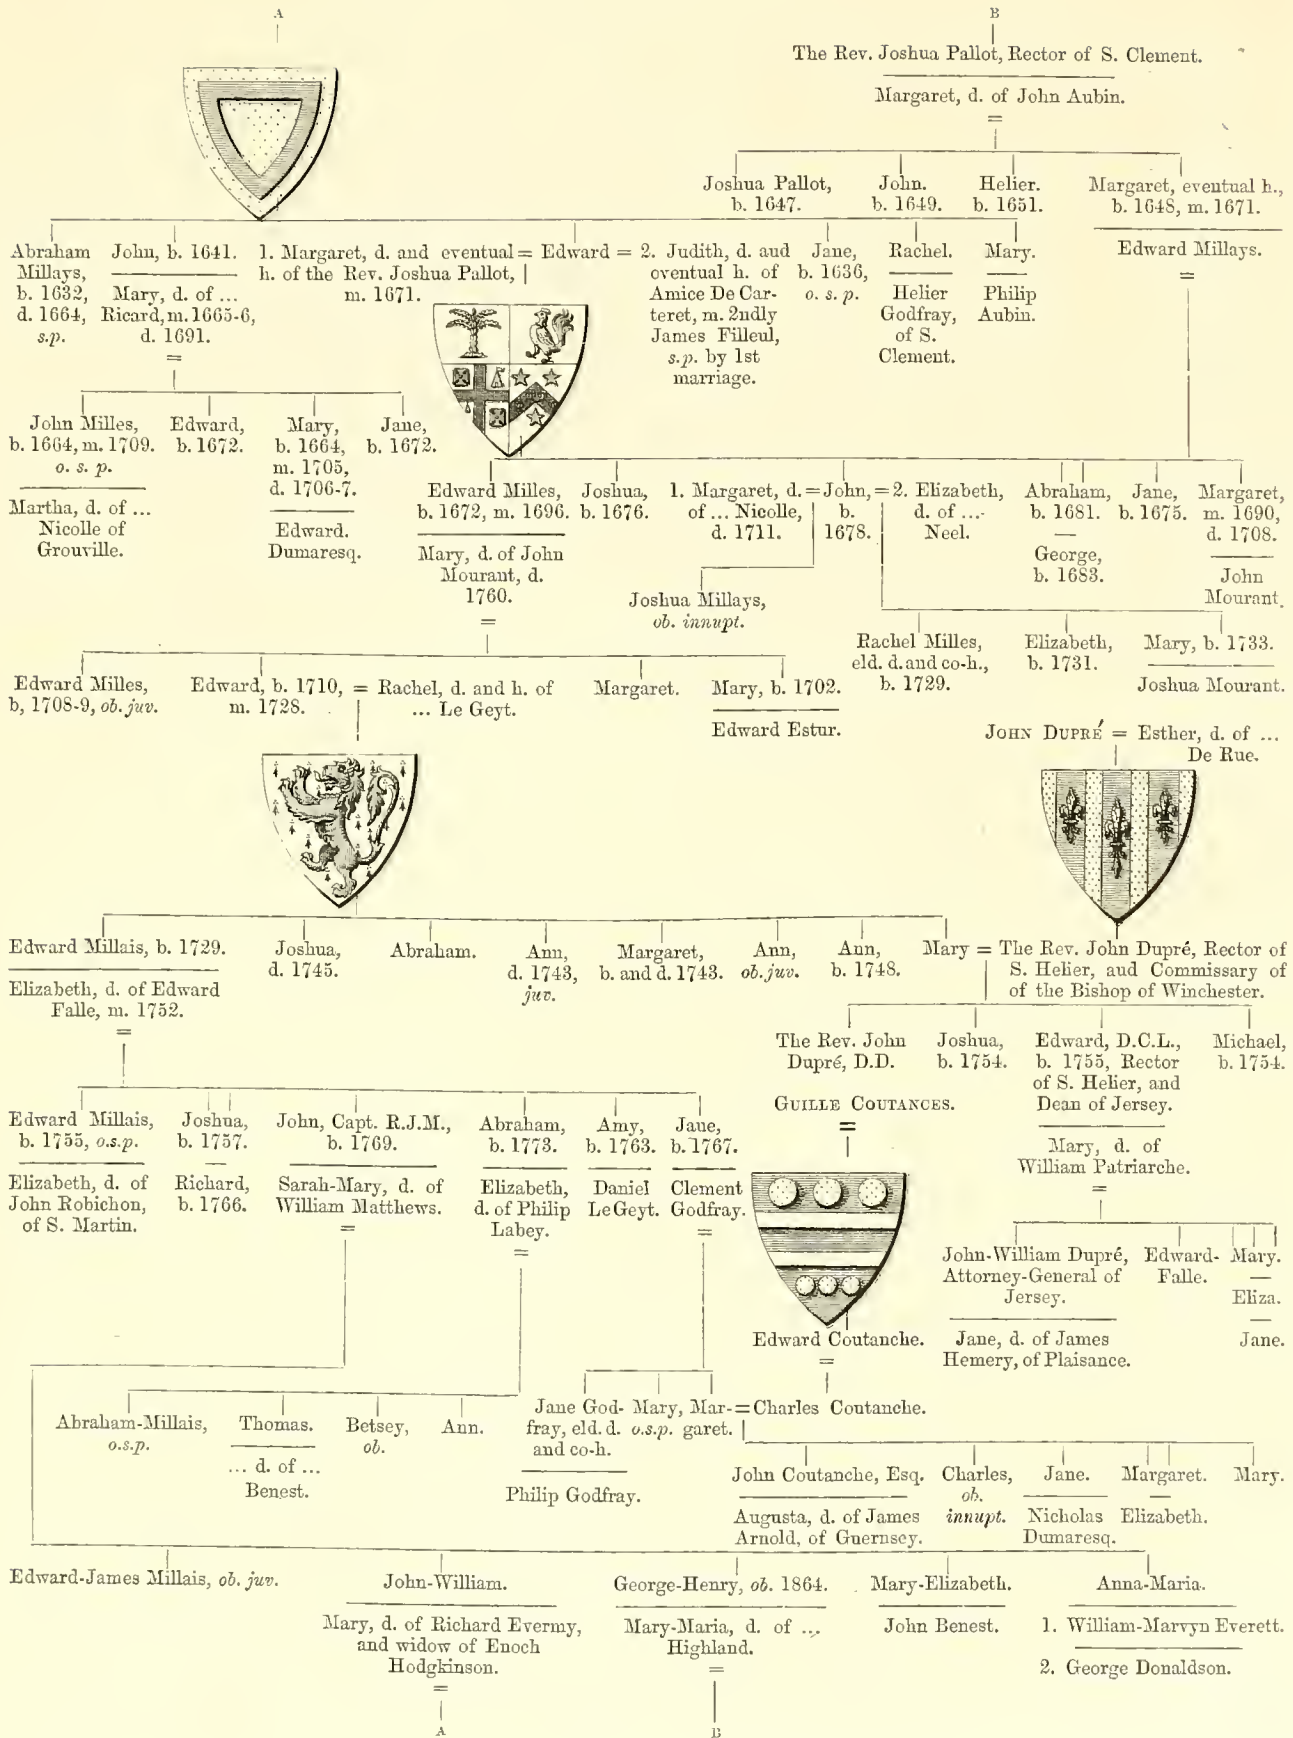 A
B
The Rev. Joshua Pallot, Rector of S. Clement.
Margaret, d. of John Aubin.
=
Joshua Pallot,
b. 1647.
John.
b. 1649.
Helier.
b. 1651.
Margaret, eventual h.,
b. 1648, m. 1671.
Edward Millays.
=
Abraham
Millays,
b. 1632,
d. 1664,
s.p.
John, b. 1641.
Mary, d. of ...
Ricard, m. 1665-6,
d. 1691.
=
1. Margaret, d. and eventual = Edward = 2. Judith, d. and
h. of the Rev. Joshua Pallot,
m. 1671.
eventual h. of
Amice De Car-
teret, m. 2ndly
James Filleul,
s.p. by 1st
marriage.
Jane,
b. 1636,
o. s. p.
Rachel.
Helier
Godfray,
of S.
Clement.
Mary.
Philip
Aubin.
John Milles,
b. 1664, m. 1709.
o. s. p.
Martha, d. of ...
Nicolle of
Grouville.
Edward,
b. 1672.
Mary,
b. 1664,
m. 1705,
d. 1706-7.
Edward.
Dumaresq.
Jane,
b. 1672.
Edward Milles,
b. 1672, m. 1696.
Mary, d. of John
Mourant, d.
1760.
=
Joshua,
b. 1676.
1. Margaret, d. = John, = 2. Elizabeth,
of ... Nicolle,
d. 1711.
b.
1678.
d. of ...
Neel.
Abraham,
b. 1681.
George,
b. 1683.
Jane,
b. 1675.
Margaret,
m. 1690,
d. 1708.
John
Mourant.
Joshua Millays,
ob. innupt.
Rachel Milles,
eld. d. and co-h.,
b. 1729.
Elizabeth,
b. 1731.
Mary, b. 1733.
Joshua Mourant.
Edward Milles,
b, 1708-9, ob. juv.
Edward, b. 1710, = Rachel, d. and h. of
m. 1728.
... Le Geyt.
Margaret.
Mary, b. 1702.
Edward Estur.
JOHN DUPRÉ = Esther, d. of ...
De Rue.
Edward Millais, b. 1729.
Elizabeth, d. of Edward
Falle, m. 1752.
=
Joshua,
d. 1745.
Abraham.
Ann,
d. 1743,
juv.
Margaret,
b. and d. 1743.
Ann,
ob. juv.
Ann,
b. 1748.
Mary = The Rev. John Dupré, Rector of
S. Helier, and Commissary of
of the Bishop of Winchester.
The Rev. John
Dupré, D.D.
Joshua,
b. 1754.
Edward, D.C.L.,
b. 1755, Rector
of S. Helier, and
Dean of Jersey.
Mary, d. of
William Patriarche.
=
Michael,
b. 1754.
Edward Millais,
b. 1755, o.s.p.
Elizabeth, d. of
John Robichon,
of S. Martin.
Joshua,
b. 1757.
Richard,
b. 1766.
John, Capt. R.J.M.,
b. 1769.
Sarah-Mary, d. of
William Matthews.
=
Abraham,
b. 1773.
Elizabeth,
d. of Philip
Labey.
=
Amy,
b. 1763.
Daniel
Le Geyt.
Jane,
b. 1767.
Clement
Godfray.
=
GUILLE COUTANCES.
=
Edward Coutanche.
=
John-William Dupré,
Attorney-General of
Jersey.
Jane, d. of James
Hemery, of Plaisance.
Edward-
Falle.
Mary.
Eliza.
Jane.
Abraham-Millais,
o.s.p.
Thomas.
... d. of ...
Benest.
Betsey,
ob.
Ann.
Jane God-
fray, eld. d.
and co-h.
Philip Godfray.
Mary,
o.s.p.
Mar- = Charles Coutanche.
garet.
John Coutanche, Esq.
Augusta, d. of James
Arnold, of Guernsey.
Charles,
ob.
innupt.
Jane.
Nicholas
Dumaresq.
Margaret.
Elizabeth.
Mary.
Edward-James Millais, ob. juv.
John-William.
Mary, d. of Richard Evermy,
and widow of Enoch
Hodgkinson.
=
A
George-Henry, ob. 1864.
Mary-Maria, d. of ...
Highland.
=
B
Mary-Elizabeth.
John Benest.
Anna-Maria.
1. William-Marvyn Everett.
2. George Donaldson.